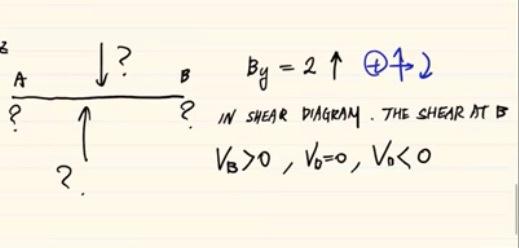 ?
A
B
?
?
?.
By = 2 ↑ ⊕↑→⤸
IN SHEAR DIAGRAM. THE SHEAR AT B
VB>0, Vb=0, VB<0